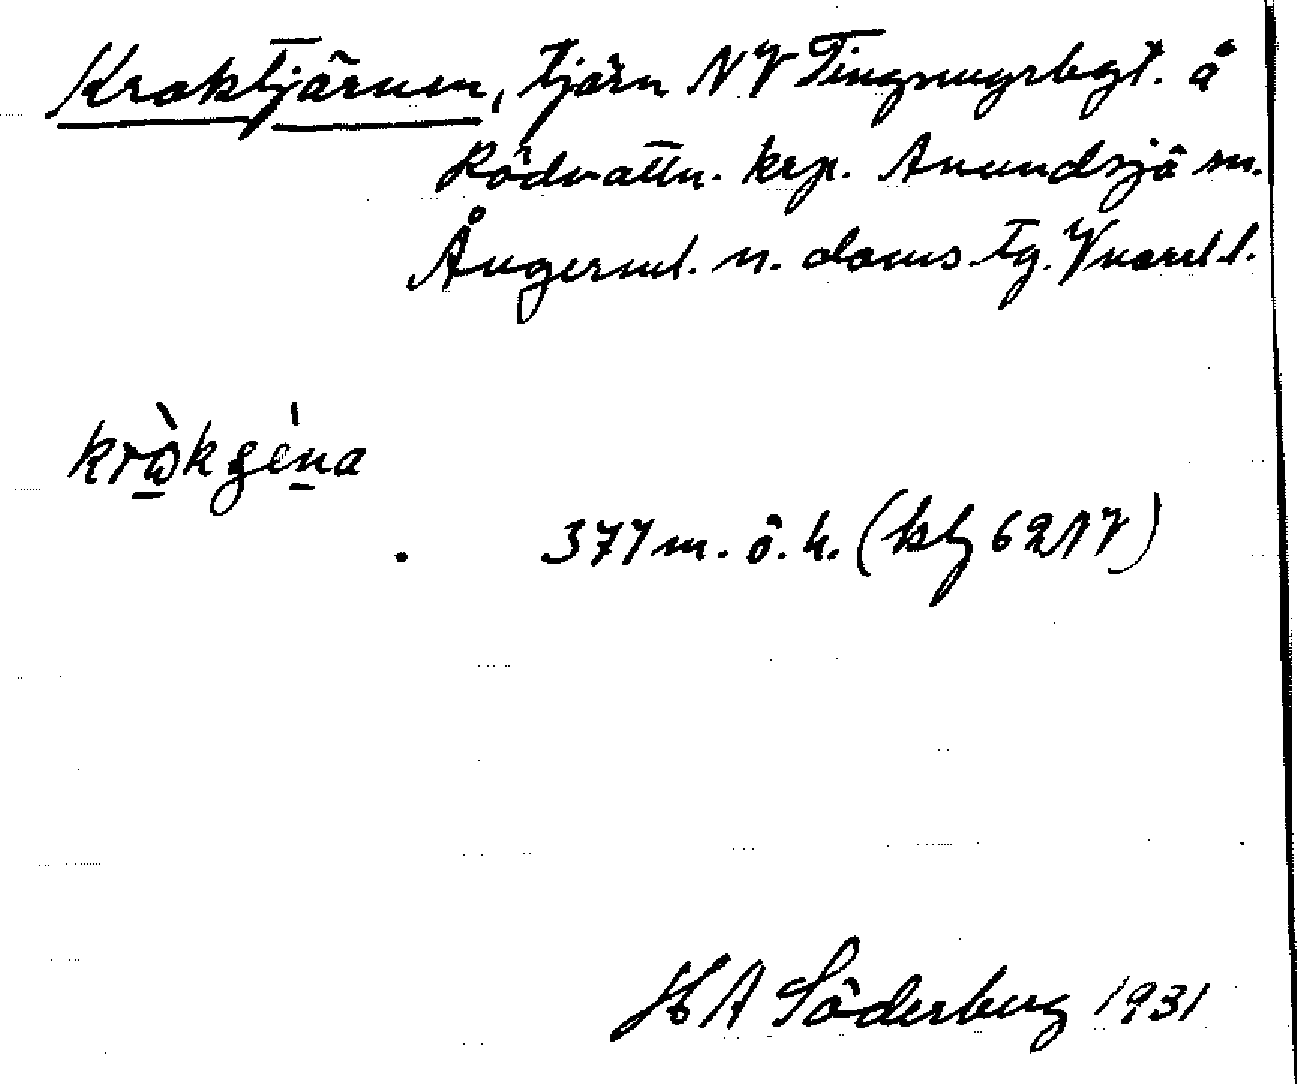 Kroktjärnen, tjärn NV Tingmyrbgt. å
Rödvattn. krp. Anundsjö sn.
Ångerml. n. doms. tg. Vnorrl l.
kròkǥéna
377 m. ö. h. (kbl 62 NV)
H A Söderberg 1931